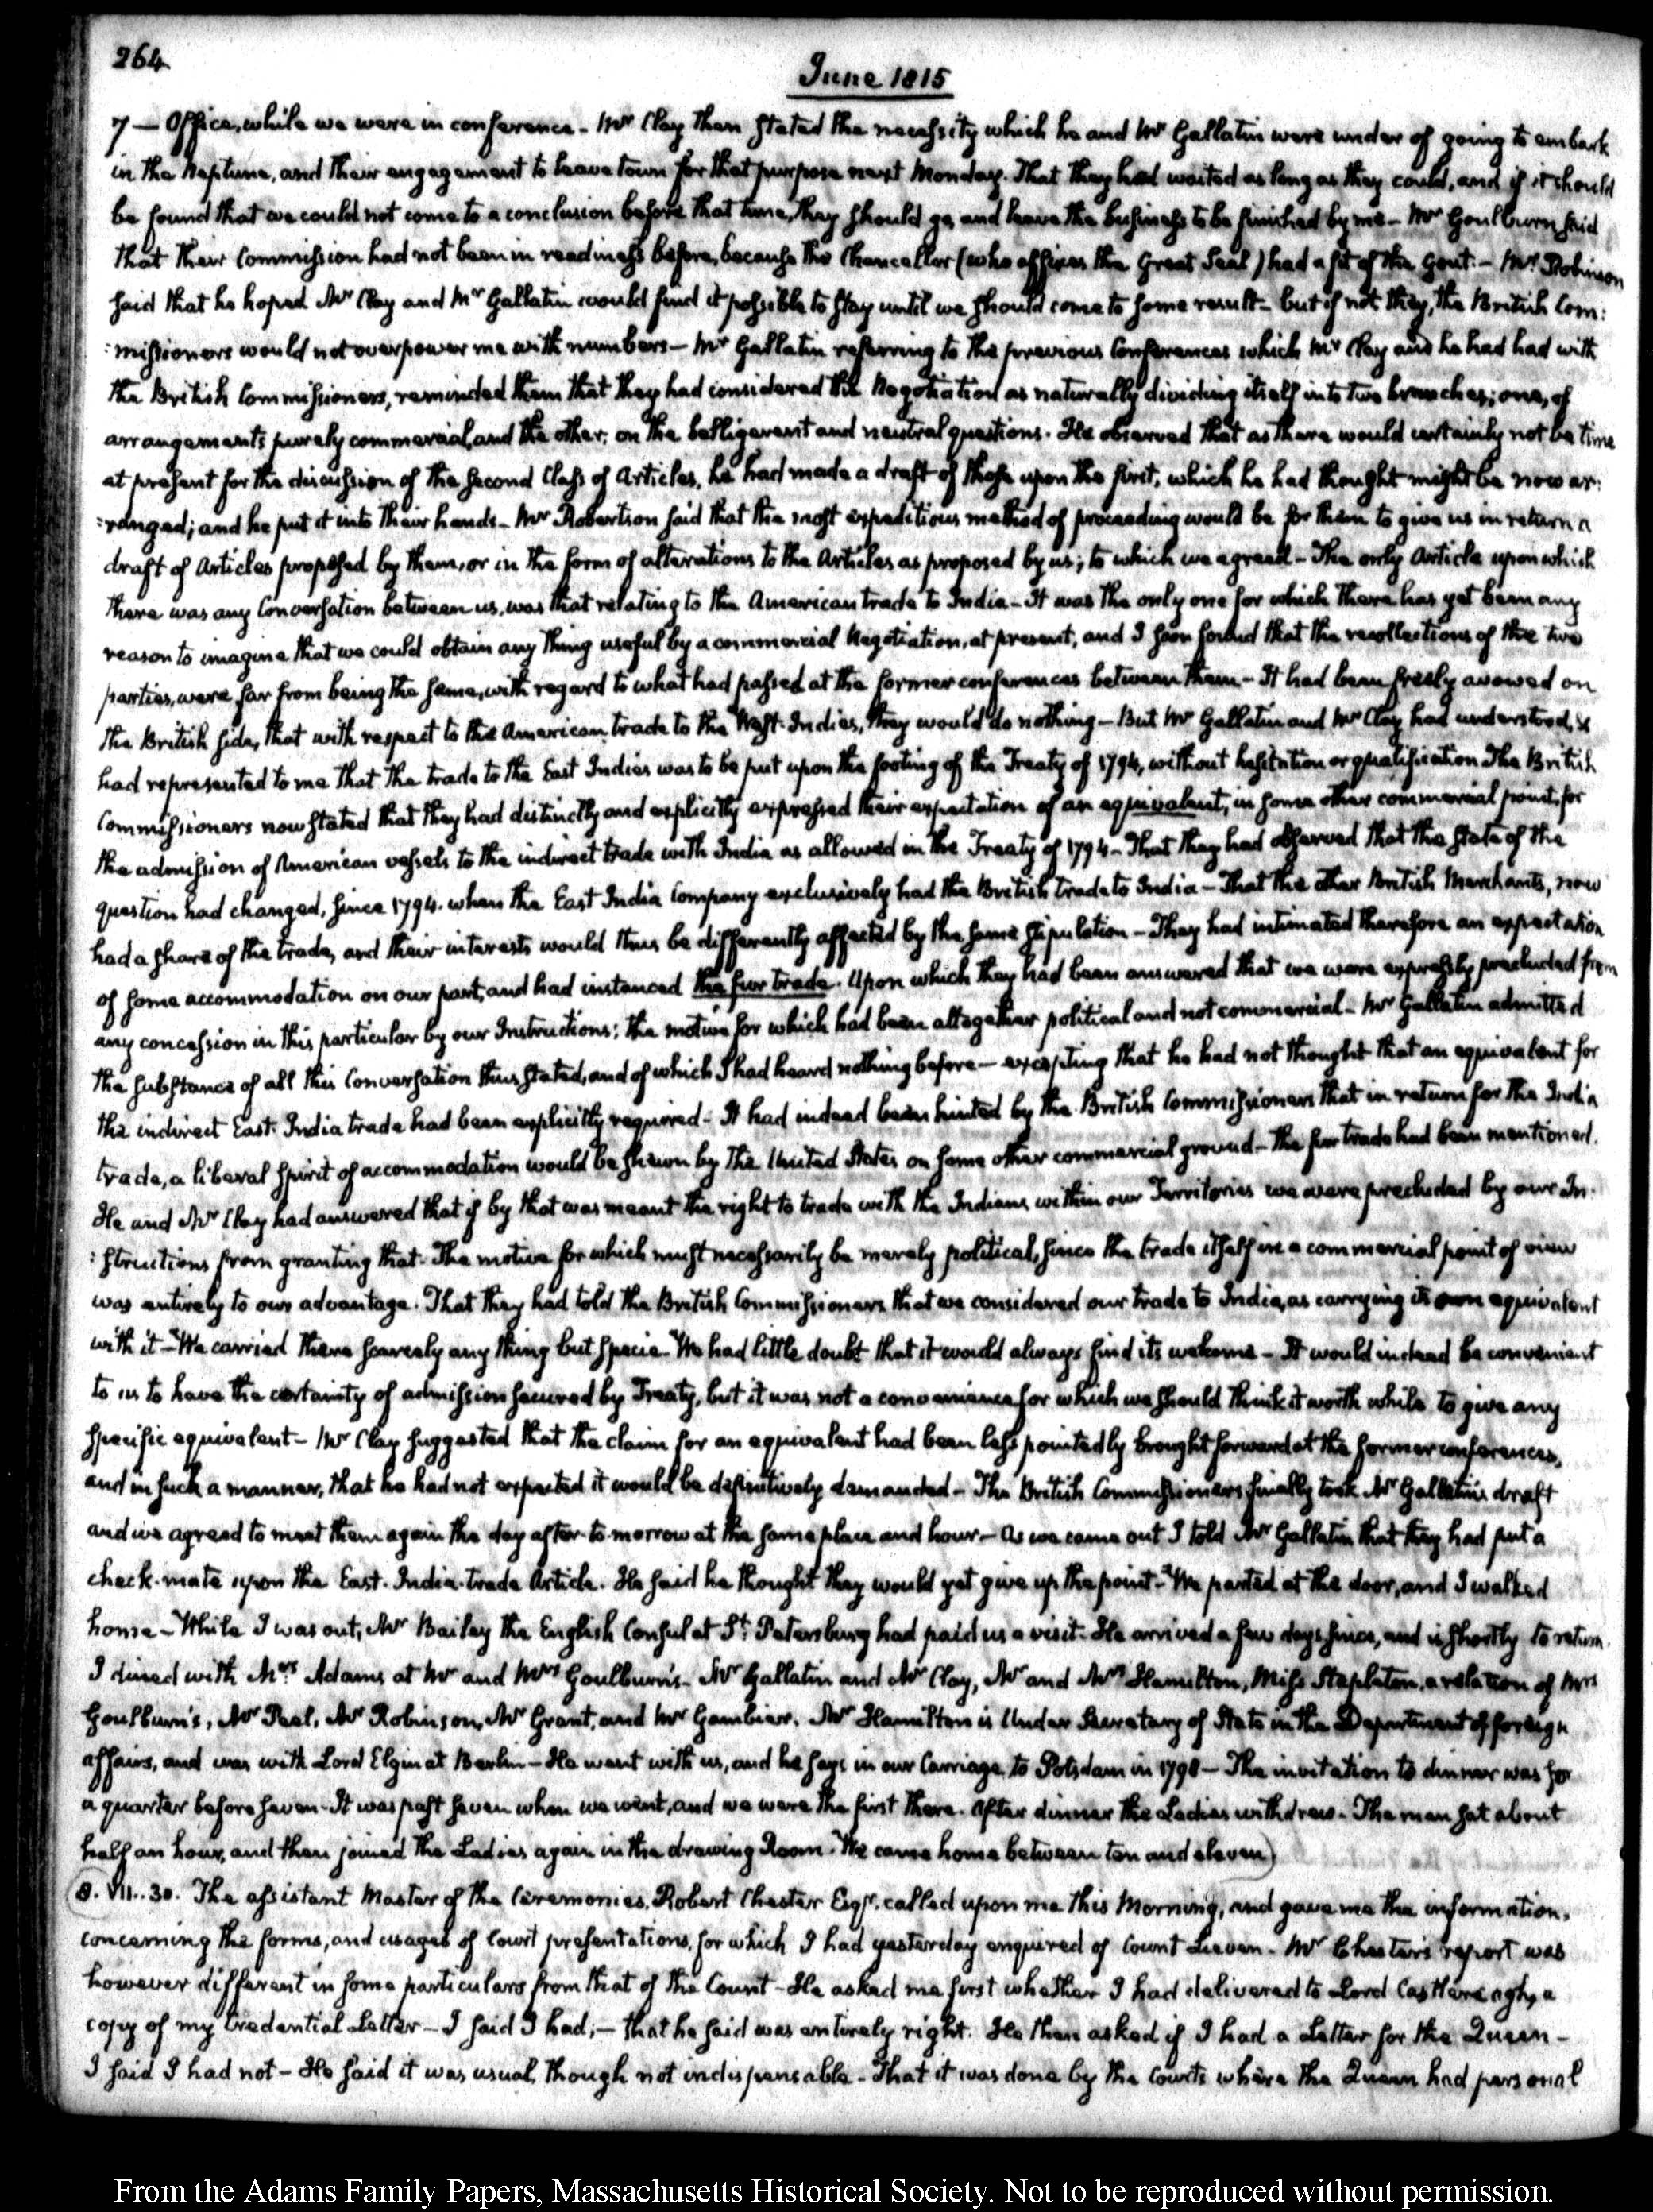 264
June 1815
7 — Office, while we were in conference - Mr Clay then stated the necessity which he and Mr Gallatin were under of going to embark
in the Neptune, and their engagement to leave town for that purpose next Monday. That they had waited as long as they could, and if it should
be found that we could not come to a conclusion before that time, they should go, and leave the business to be finished by me - Mr Goulburn said
that their Commission had not been in readiness before, because the Chancellor (who affixes the Great Seal) had a fit of the Gout. - Mr Robinson
said that he hoped Mr Clay and Mr Gallatin would find it possible to stay until we should come to some result - but if not they, the British Com:
:missioners would not overpower me with numbers - Mr Gallatin referring to the previous Conferences which Mr Clay and he had had with
the British Commissioners, reminded them that they had considered the Negotiation as naturally dividing itself into two branches; one, of
arrangements purely commercial, and the other, on the belligerent and neutral questions. He observed that as there would certainly not be time
at present for the discussion of the second Class of Articles, he had made a draft of those upon the first, which he had thought might be now ar:
:ranged; and he put it into their hands - Mr Robertson said that the most expeditious method of proceeding would be for them to give us in return a
draft of Articles proposed by them, or in the form of alterations to the Articles as proposed by us; to which we agreed - The only Article upon which
there was any Conversation between us, was that relating to the American trade to India - It was the only one for which there has yet been any
reason to imagine that we could obtain any thing useful by a commercial Negotiation, at present, and I soon found that the recollections of the two
parties, were far from being the same, with regard to what had passed at the former conferences between them - It had been freely avowed on
the British side, that with respect to the American trade to the West-Indies, they would do nothing - But Mr Gallatin and Mr Clay had understood, &
had represented to me that the trade to the East Indies was to be put upon the footing of the Treaty of 1794, without hesitation or qualification The British
Commissioners now stated that they had distinctly and explicitly expressed their expectation of an equivalent, in some other commercial point, for
the admission of American vessels to the indirect trade with India as allowed in the Treaty of 1794 - That they had observed that the state of the
question had changed, since 1794. when the East India Company exclusively had the British trade to India - That the other British Merchants, now
had a share of the trade, and their interests would thus be differently affected by the same stipulation - They had intimated therefore an expectation
of some accommodation on our part, and had instanced the fur trade. Upon which they had been answered that we were expressly precluded from
any concession in this particular by our Instructions: the motive for which had been altogether political and not commercial - Mr Gallatin admitted
the substance of all this Conversation thus stated, and of which I had heard nothing before - excepting that he had not thought that an equivalent for
the indirect East-India trade had been explicitly required - It had indeed been hinted by the British Commissioners that in return for the India
trade, a liberal spirit of accommodation would be shewn by the United States on some other commercial ground - The fur trade had been mentioned.
He and Mr Clay had answered that if by that was meant the right to trade with the Indians within our Territories we were precluded by our In:
:structions from granting that. The motive for which must necessarily be merely political, since the trade itself in a commercial point of view
was entirely to our advantage. That they had told the British Commissioners that we considered our trade to India, as carrying its own equivalent
with it - We carried there scarcely any thing but specie - We had little doubt that it would always find its welcome - It would indeed be convenient
to us to have the certainty of admission secured by Treaty, but it was not a convenience for which we should think it worth while to give any
specific equivalent - Mr Clay suggested that the claim for an equivalent had been less pointedly brought forward at the former conferences,
and in such a manner, that he had not expected it would be definitively demanded - The British Commissioners finally took Mr Gallatin's draft
and we agreed to meet them again the day after to-morrow at the same place and hour - As we came out I told Mr Gallatin that they had put a
check-mate upon the East-India-trade Article. He said he thought they would yet give up the point - We parted at the door, and I walked
home - While I was out, Mr Bailey the English Consul at St. Petersburg had paid us a visit. He arrived a few days since, and is shortly to return.
I dined with Mrs Adams at Mr and Mrs Goulburn's - Mr Gallatin and Mr Clay, Mr and Mrs Hamilton, Miss Stapleton, a relation of Mrs
Goulburn's, Mr Peel, Mr Robinson, Mr Grant, and Mr Gambier. Mr Hamilton is Under Secretary of State in the Department of foreign
affairs, and was with Lord Elgin at Berlin - He went with us, and he says in our Carriage, to Potsdam in 1798 - The invitation to dinner was for
a quarter before seven. It was past seven when we went, and we were the first there. After dinner the Ladies withdrew. The men sat about
half an hour, and then joined the Ladies again in the drawing Room. We came home between ten and eleven)
8. VII..30. The assistant Master of the Ceremonies, Robert Chester Esqr. called upon me this Morning, and gave me the information,
concerning the forms, and usages of Court presentations, for which I had yesterday enquired of Count Lieven. Mr Chester's report was
however different in some particulars from that of the Count - He asked me first whether I had delivered to Lord Castlereagh, a
copy of my Credential Letter - I said I had; - that he said was entirely right. He then asked if I had a Letter for the Queen -
I said I had not - He said it was usual, though not indispensable - That it was done by the Courts where the Queen had personal
From the Adams Family Papers, Massachusetts Historical Society. Not to be reproduced without permission.